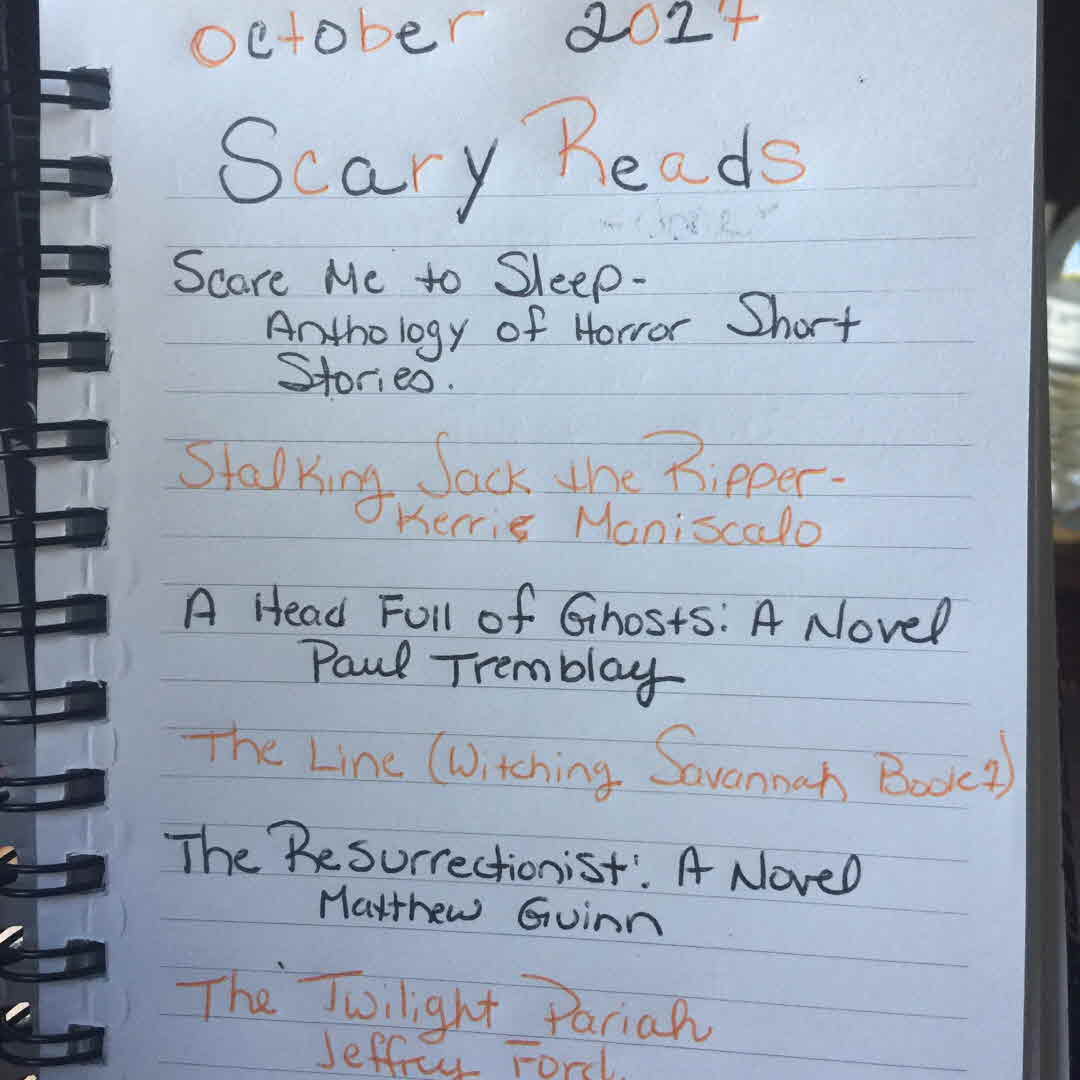 October 2017
Scary Reads
Scare Me to Sleep-
Anthology of Horror Short
Stories.
Stalking Jack the Ripper-
Kerrie Maniscalo
A Head Full of Ghosts: A Novel
Paul Tremblay
The Line (Witching Savannah Book 1)
The Resurrectionist: A Novel
Matthew Guinn
The Twilight Pariah
Jeffrey Ford.